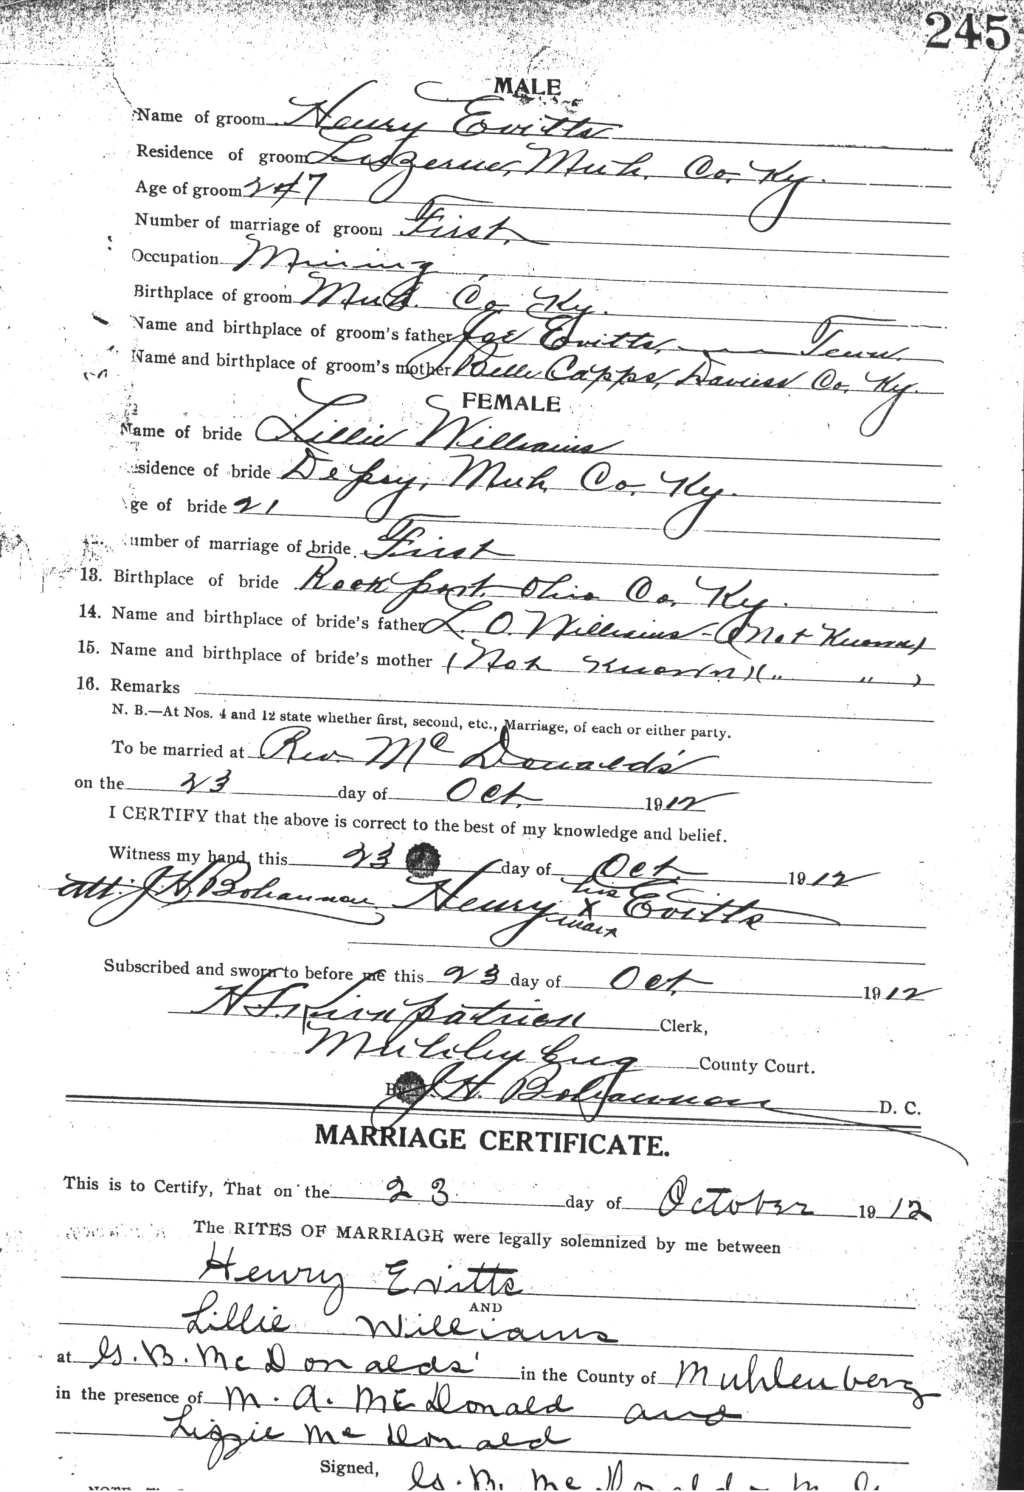 245
MALE
Name of groom Henry Evitts
Residence of groom Luzerne, Muh. Co. Ky.
Age of groom 247
Number of marriage of groom First.
Occupation Mining
Birthplace of groom Muh. Co. Ky.
Name and birthplace of groom's father Joe Evitts, Tenn.
Name and birthplace of groom's mother Belle Capps, Daviess Co. Ky.
FEMALE
Name of bride Lillie Williams
sidence of bride Depoy, Muh. Co. Ky.
ge of bride 21
umber of marriage of bride. First
13. Birthplace of bride Rockport. Ohio Co. Ky.
14. Name and birthplace of bride's father L. O. Williams - (Not Known)
15. Name and birthplace of bride's mother (Not Known) (" ")
16. Remarks
N. B.—At Nos. 4 and 12 state whether first, second, etc., Marriage, of each or either party.
To be married at Rev. McDonald's
on the 23 day of Oct. 1912
I CERTIFY that the above is correct to the best of my knowledge and belief.
Witness my hand, this 23 day of Oct. 1912
his
Att: J. H. Bohannon Henry X Evitts
mark
Subscribed and sworn to before me this 23 day of Oct. 1912
Kirkpatrick Clerk,
Muhlenburg County Court.
By J. H. Bohannon D. C.
MARRIAGE CERTIFICATE.
This is to Certify, That on the 23 day of October 1912
The RITES OF MARRIAGE were legally solemnized by me between
Henry Evitts
AND
Lillie Williams
at G. B. McDonalds' in the County of Muhlenberg
in the presence of M. A. McDonald and
Lizzie McDonald
Signed, G. B. McDonald